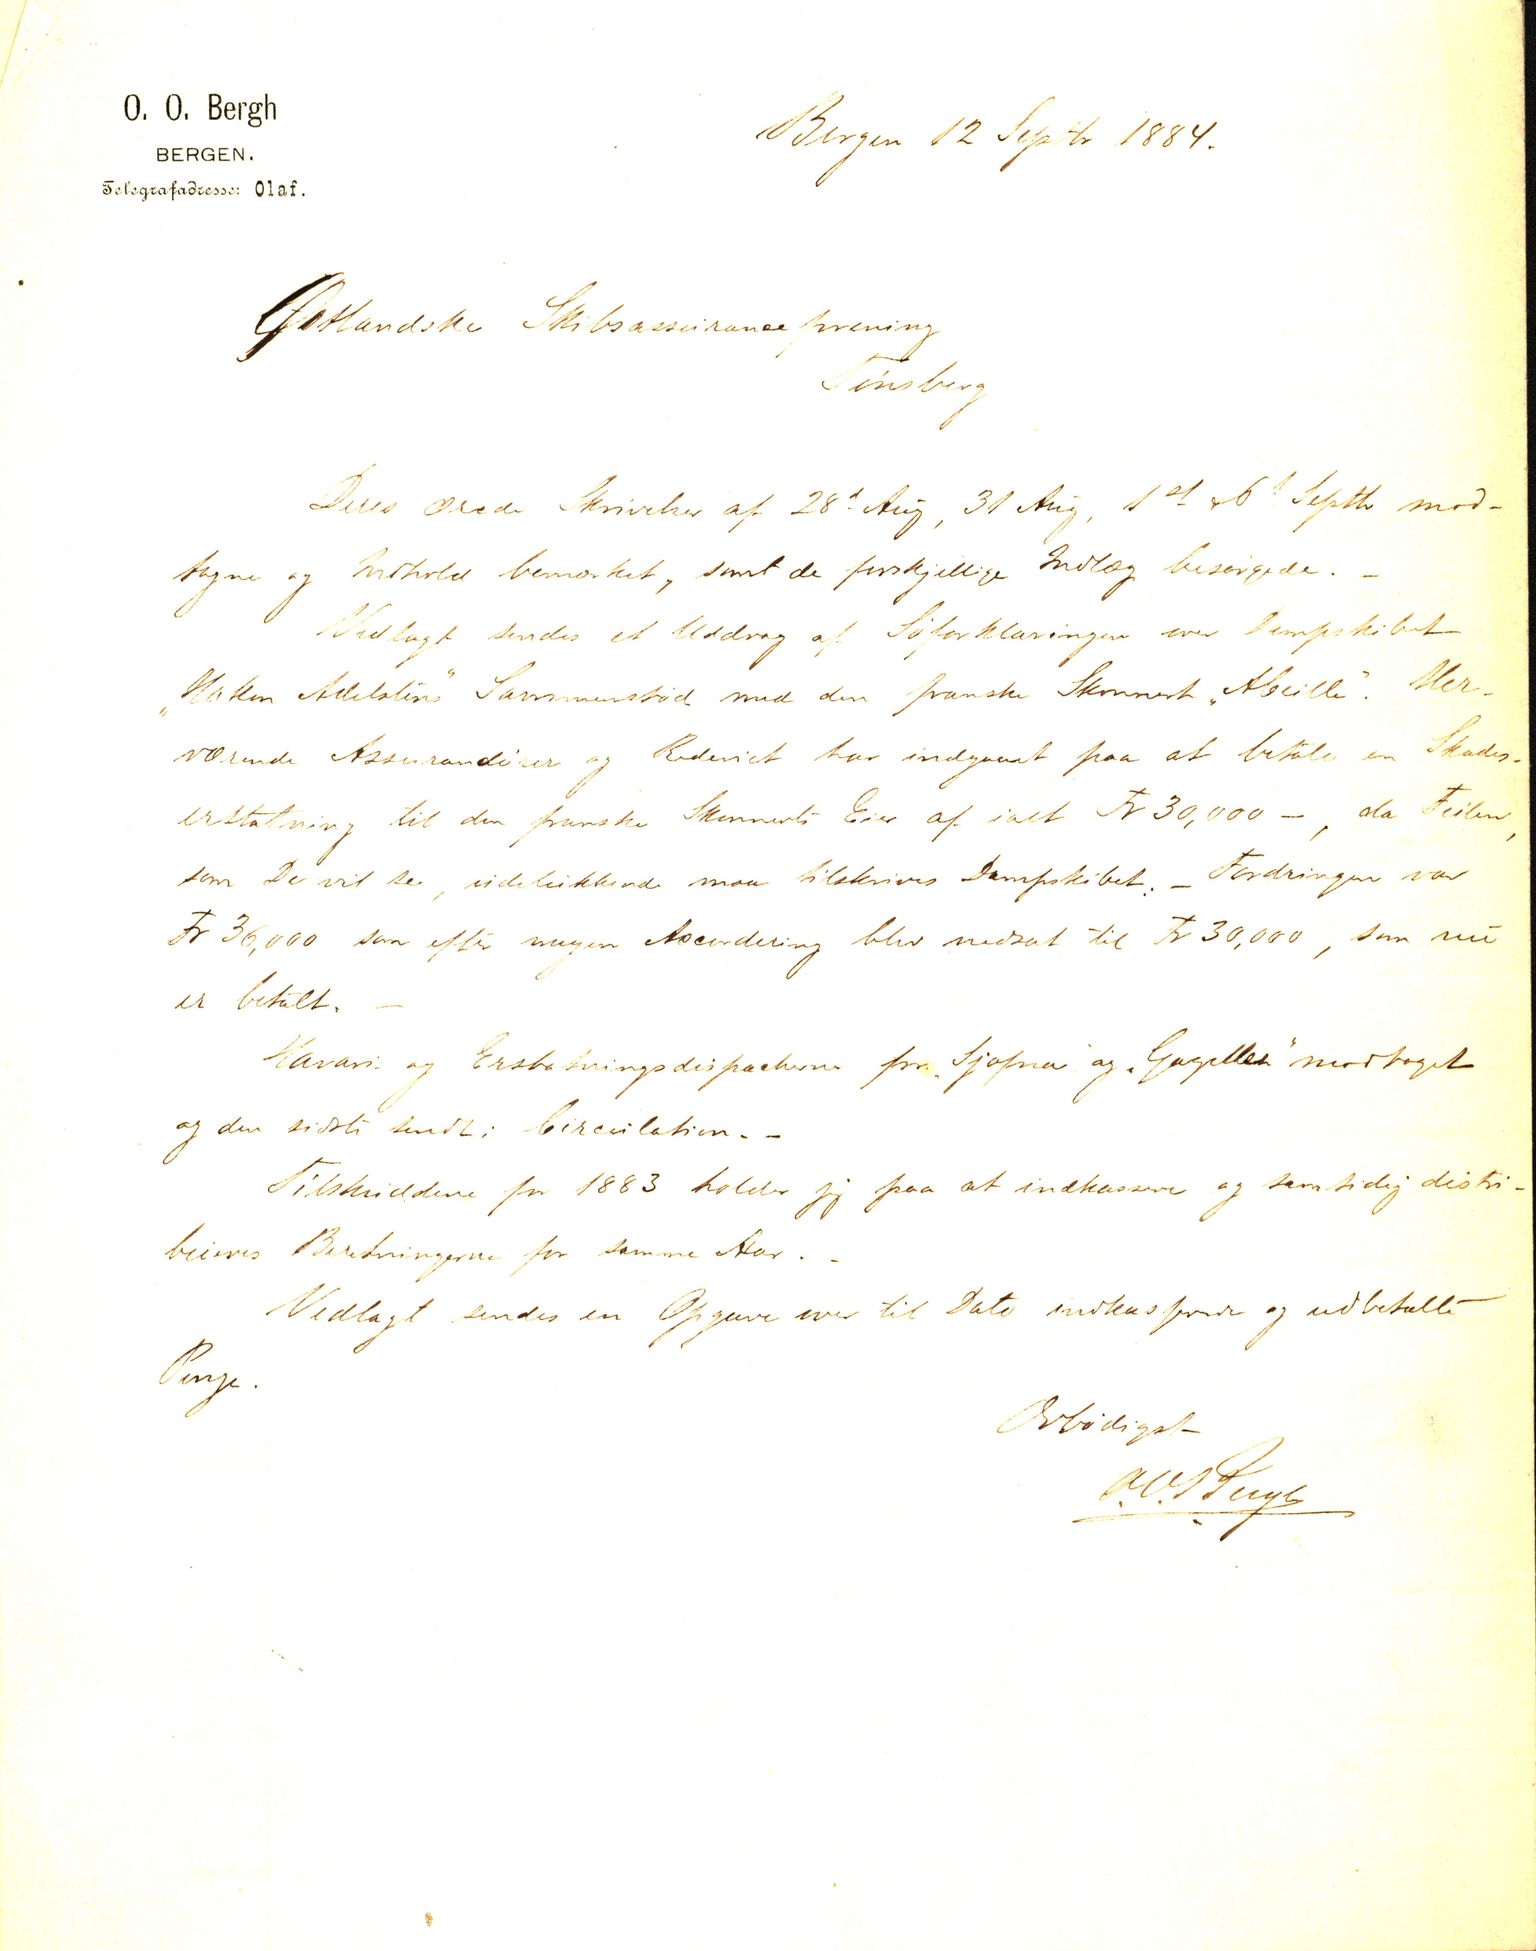 O. O. Bergh
BERGEN.
Telegrafadresse: Olaf.
Bergen 12 Septbr 1884.
Østlandske Skibsassuranceforening
Tönsberg
Deres ærede Skrivelser af 28d Aug, 31 Aug, 1st & 6t Septbr mod-
tagne og Indhold bemærket, samt de forskjellige Indlæg besørgede. -
Vedlagt sendes et Uddrag af Søforklaringen over Dampskibet
„Hakon Adelsteins" Sammenstød med den franske Skonnert „Abeille". Her-
værende Assurandører og Rederiet har indgaaet paa at betale en Skades-
erstatning til den franske Skonnerts Eier af ialt Fr 30,000 -, da Feilen,
som De vil se, udelukkende maa tilskrives Dampskibet. - Fordringen var
Fr 36,000 som efter megen Accordering blev nedsat til Fr 30,000, som nu
er betalt. -
Havari og Erstatningsdispacherne for „Sjofna" og „Gazellen" modtaget
og den sidste sendt i Circulation. -
Tilskuddene for 1883 holder jeg paa at indkassere og samtidig distri-
bueres Beretningerne for samme Aar. -
Vedlagt sendes en Opgave over til Dato indkasserede og udbetalte
Penge.
Ærbødigst
O. O. Bergh